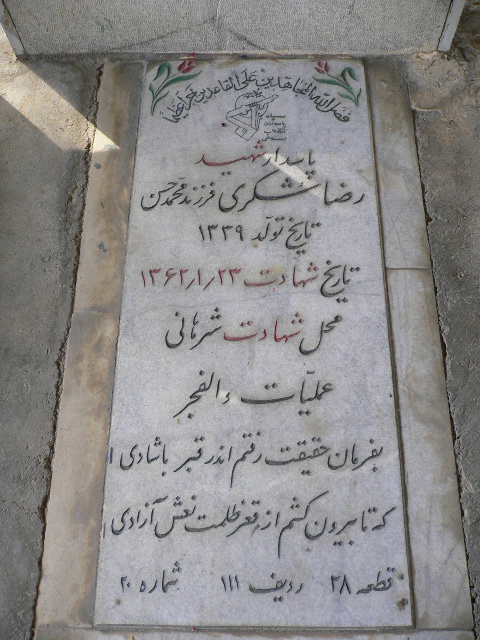 فضل الله المجاهدین علی القاعدین اجراً عظیماً
سپاه
پاسداران
انقلاب
اسلامی
پاسدار شهید
رضا شکری فرزند محمدحسن
تاریخ تولد ۱۳۳۹
تاریخ شهادت ۱۳۶۲/۱/۲۳
محل شهادت شرهانی
عملیّات والفجر
بفرمان حقیقت رفتم اندر قبر با شادی
که تا بیرون کشم از قعر ظلمت نعش آزادی
قطعه ۲۸ ردیف ۱۱۱ شماره ۲۰